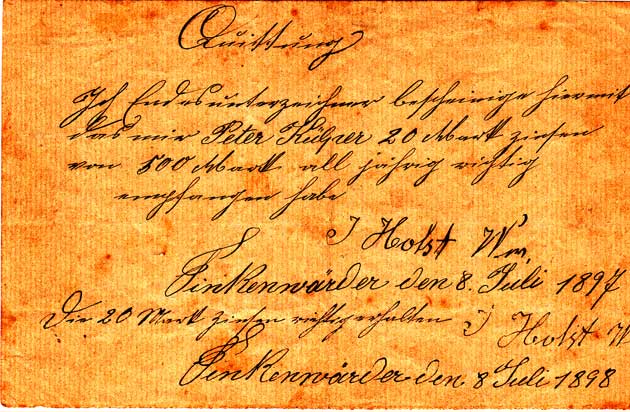 Quittung
Ich Endesunterzeichner bescheinige hiermit
das mir Peter Külper 20 Mark Zinsen
von 500 Mark all jährig richtig
empfangen habe
J Holst Ww.
Finkenwärder den 8. Juli 1897
Die 20 Mark Zinsen richtig erhalten J Holst W
Finkenwärder den 8 Juli 1898